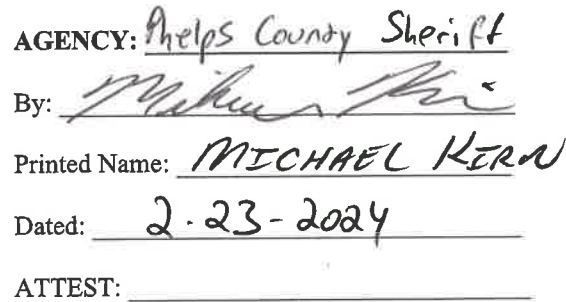 AGENCY: Phelps County Sheriff
By: Michael Kirn
Printed Name: MICHAEL KIRN
Dated: 2-23-2024
ATTEST: